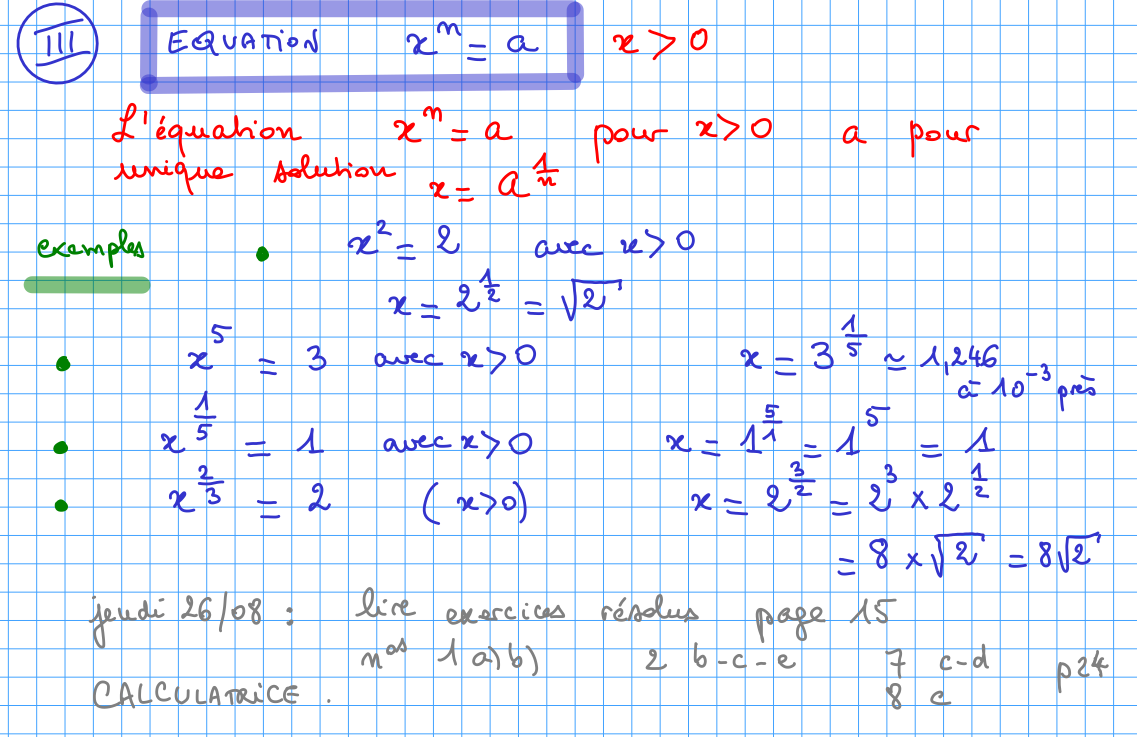 III EQUATION xⁿ = a x > 0
L'équation xⁿ = a pour x > 0 a pour
unique solution x = a^(1/n)
exemples • x² = 2 avec x > 0
x = 2^(1/2) = √2
• x⁵ = 3 avec x > 0 x = 3^(1/5) ≃ 1,246
à 10⁻³ près
• x^(1/5) = 1 avec x > 0 x = 1^(5/1) = 1⁵ = 1
• x^(2/3) = 2 (x > 0) x = 2^(3/2) = 2³ × 2^(1/2)
= 8 × √2 = 8√2
jeudi 26/08 : lire exercices résolus page 15
nos 1 a) b) 2 b-c-e 7 c-d p24
CALCULATRICE . 8 c